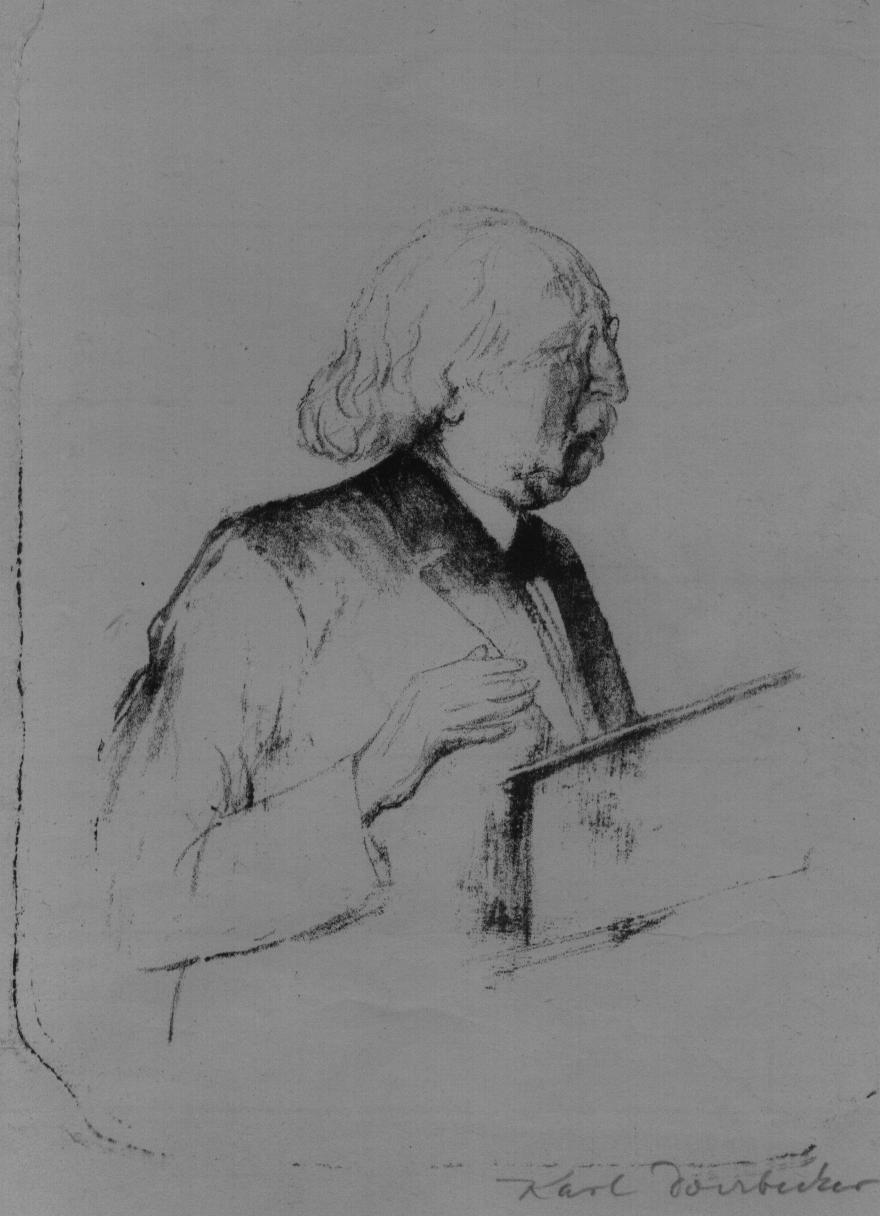 Karl Doerbecker